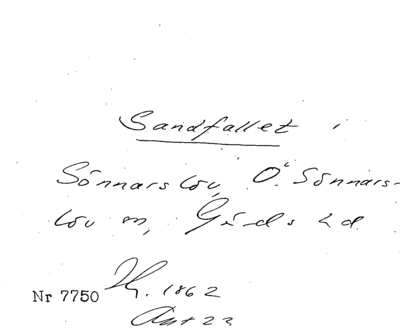 Sandfallet i
Sönnarslöv, Ö. Sönnars-
löv sn, Gärds hd
Nr 7750 1862
Ant 23